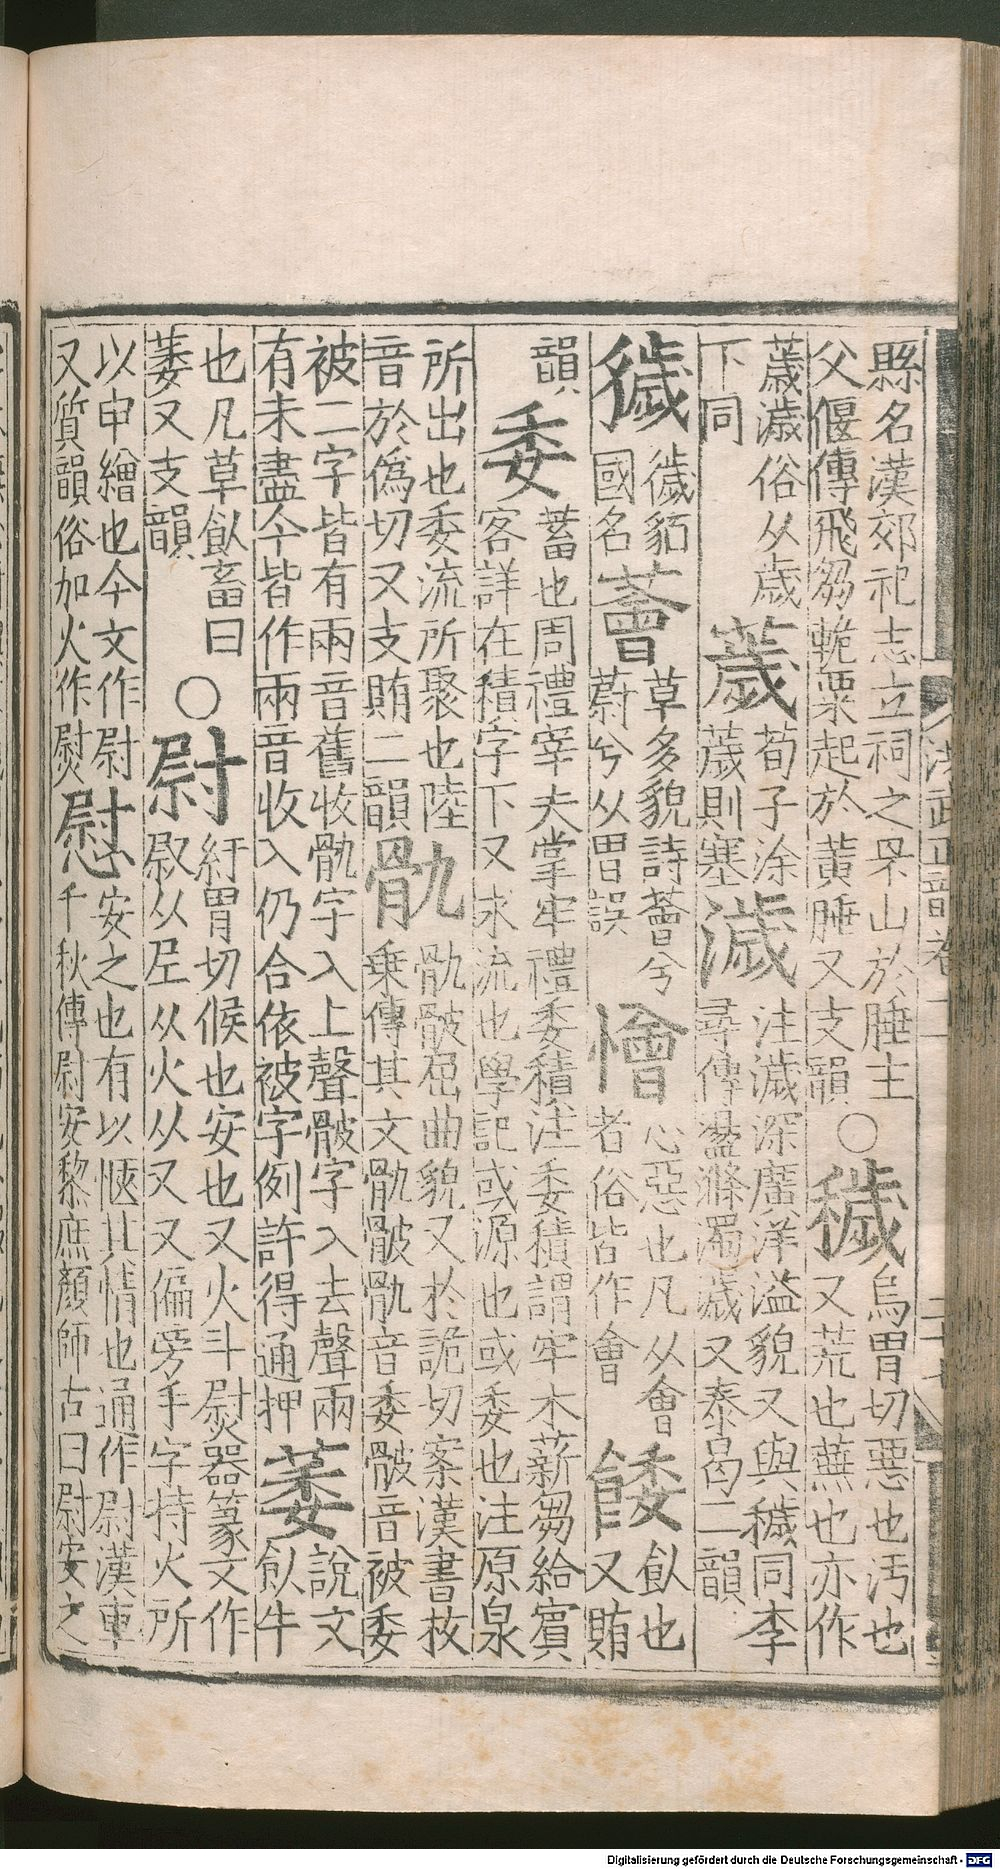 縣名漢郊祀志立祠之罘山於腄主
父偃傳飛芻輓粟起於黃腄又支韻
○穢
烏胃切惡也汚也
又荒也蕪也亦作
薉濊俗从歳
下同
薉
荀子涂
薉則塞
濊
注濊深廣洋溢貌又與穢同李
尋傳盪滌濁濊又泰曷二韻
獩
獩貊
國名
薈
草多貌詩薈兮
蔚兮从胃誤
懀
心惡也凡从會
者俗皆作會
餧
飤也
又賄
韻
委
蓄也周禮宰夫掌牢禮委積注委積謂牢木薪芻給賓
客詳在積字下又求流也學記或源也或委也注原泉
所出也委流所聚也陸
音於偽切又支賄二韻
骫
骫骳屈曲貌又於詭切案漢書枚
乗傳其文骫骳骫音委骳音被委
被二字皆有兩音舊收骫字入上聲骳字入去聲兩
有未盡今皆作兩音收入仍合依被字例許得通押
萎
說文
飤牛
也凡草飤畜曰
萎又支韻
○尉
紆胃切候也安也又火斗尉器篆文作
从𡰥从火从又又偏旁手字持火所
以申繒也今文作尉
又質韻俗加火作熨
慰
安之也有以愜其情也通作尉漢車
千秋傳尉安黎庶顏師古曰尉安之
洪武正韻卷
Digitalisierung gefördert durch die Deutsche Forschungsgemeinschaft - DFG